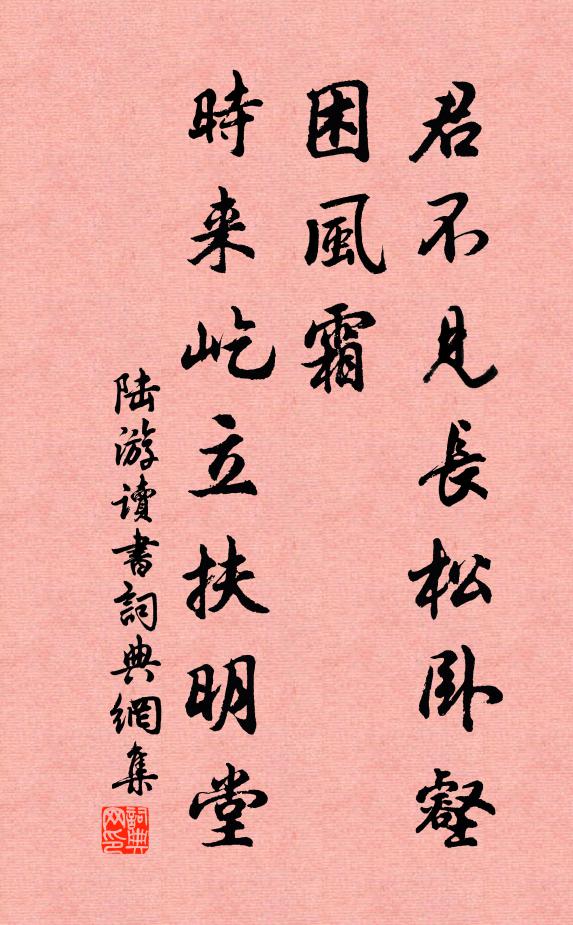 君不見長松卧壑
困風霜
時来屹立扶明堂
陆游讀書詞典網集
詞典网印